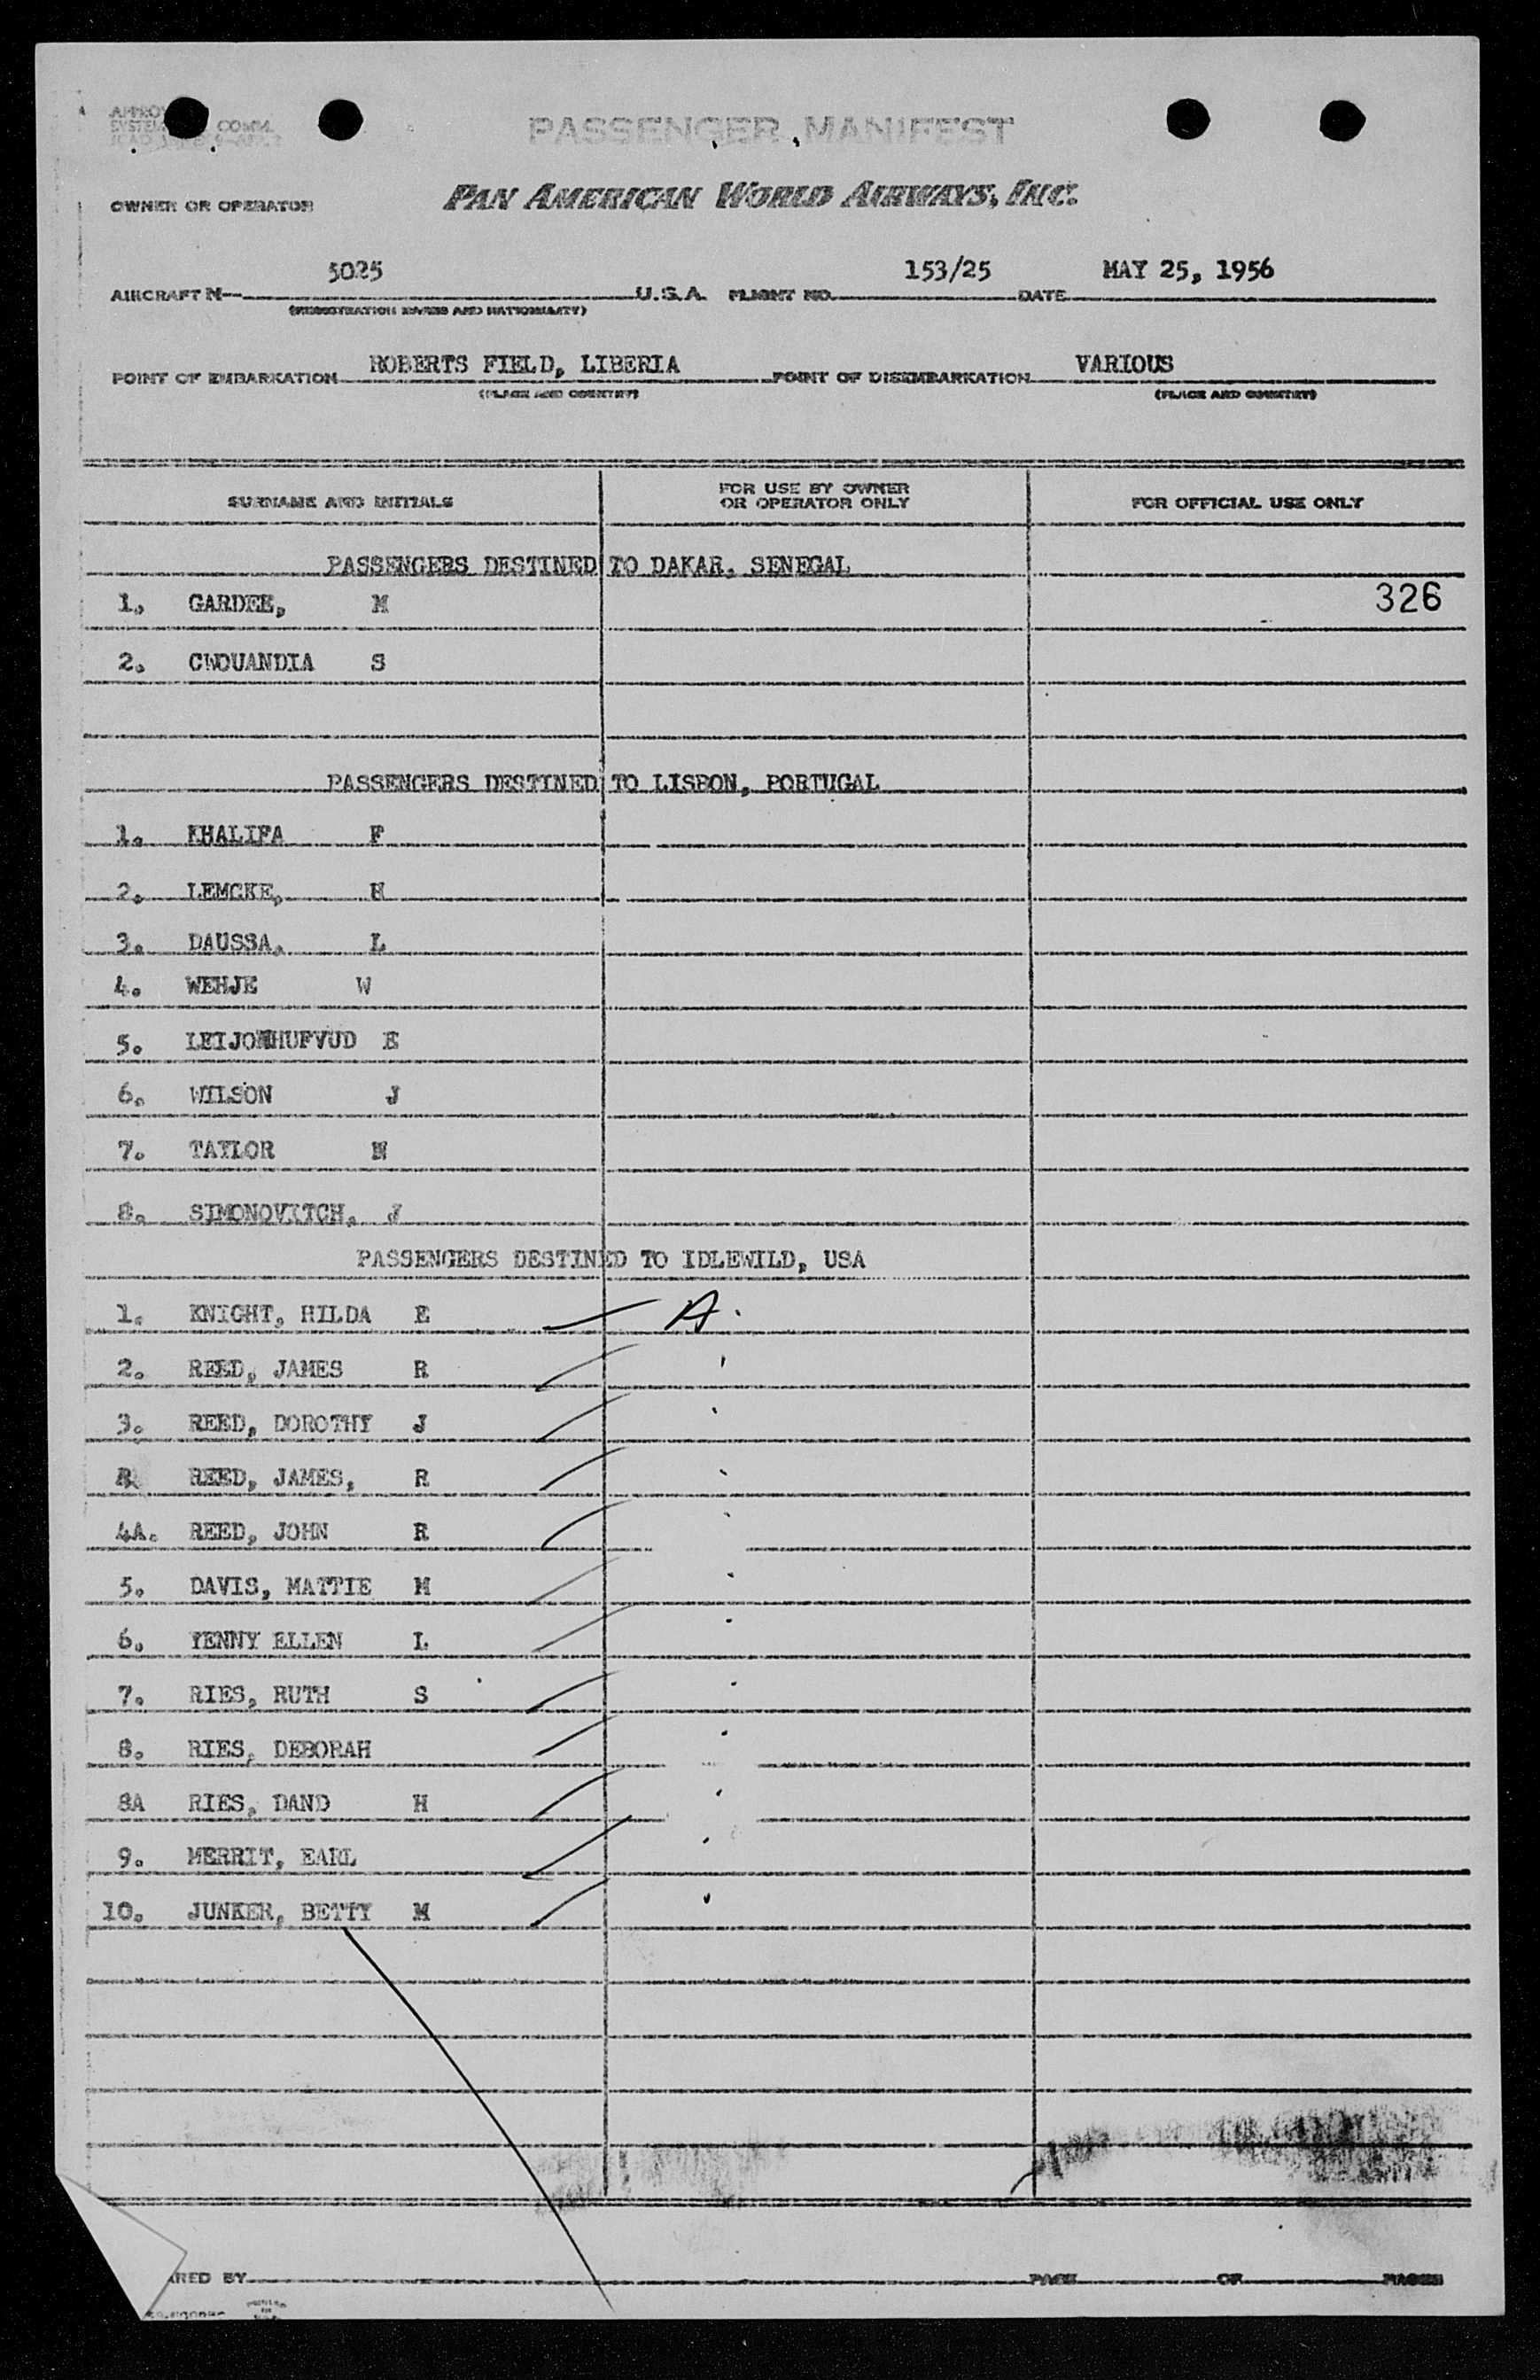 PASSENGER MANIFEST
OWNER OR OPERATOR PAN AMERICAN WORLD AIRWAYS, INC.
AIRCRAFT N- 5025 U.S.A. FLIGHT NO. 153/25 DATE MAY 25, 1956
(REGISTRATION MARKS AND NATIONALITY)
POINT OF EMBARKATION ROBERTS FIELD, LIBERIA POINT OF DISEMBARKATION VARIOUS
(PLACE AND COUNTRY) (PLACE AND COUNTRY)
SURNAME AND INITIALS FOR USE BY OWNER OR OPERATOR ONLY FOR OFFICIAL USE ONLY
PASSENGERS DESTINED TO DAKAR, SENEGAL
1. GARDEE, M 326
2. CWOUANDIA S
PASSENGERS DESTINED TO LISBON, PORTUGAL
1. KHALIFA F
2. LEMCKE, H
3. DAUSSA, L
4. WEHJE W
5. LEIJONHUFVUD E
6. WILSON J
7. TAYLOR N
8. SIMONOVITCH, J
PASSENGERS DESTINED TO IDLEWILD, USA
1. KNIGHT, HILDA E A.
2. REED, JAMES R
3. REED, DOROTHY J
REED, JAMES, R
4A. REED, JOHN R
5. DAVIS, MATTIE M
6. YENNY ELLEN L
7. RIES, RUTH S
8. RIES, DEBORAH
8A RIES, DAND H
9. MERRIT, EARL
10. JUNKER, BETTY M
ARED BY PAGE OF PAGES